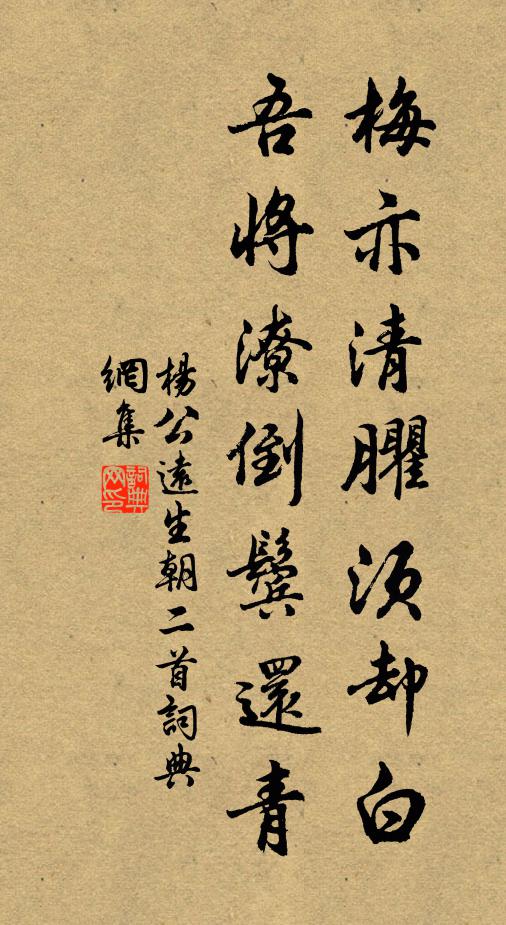 梅亦清臞須却白
吾將潦倒鬢還青
楊公遠生朝二首詞典
網集
詞典
网印